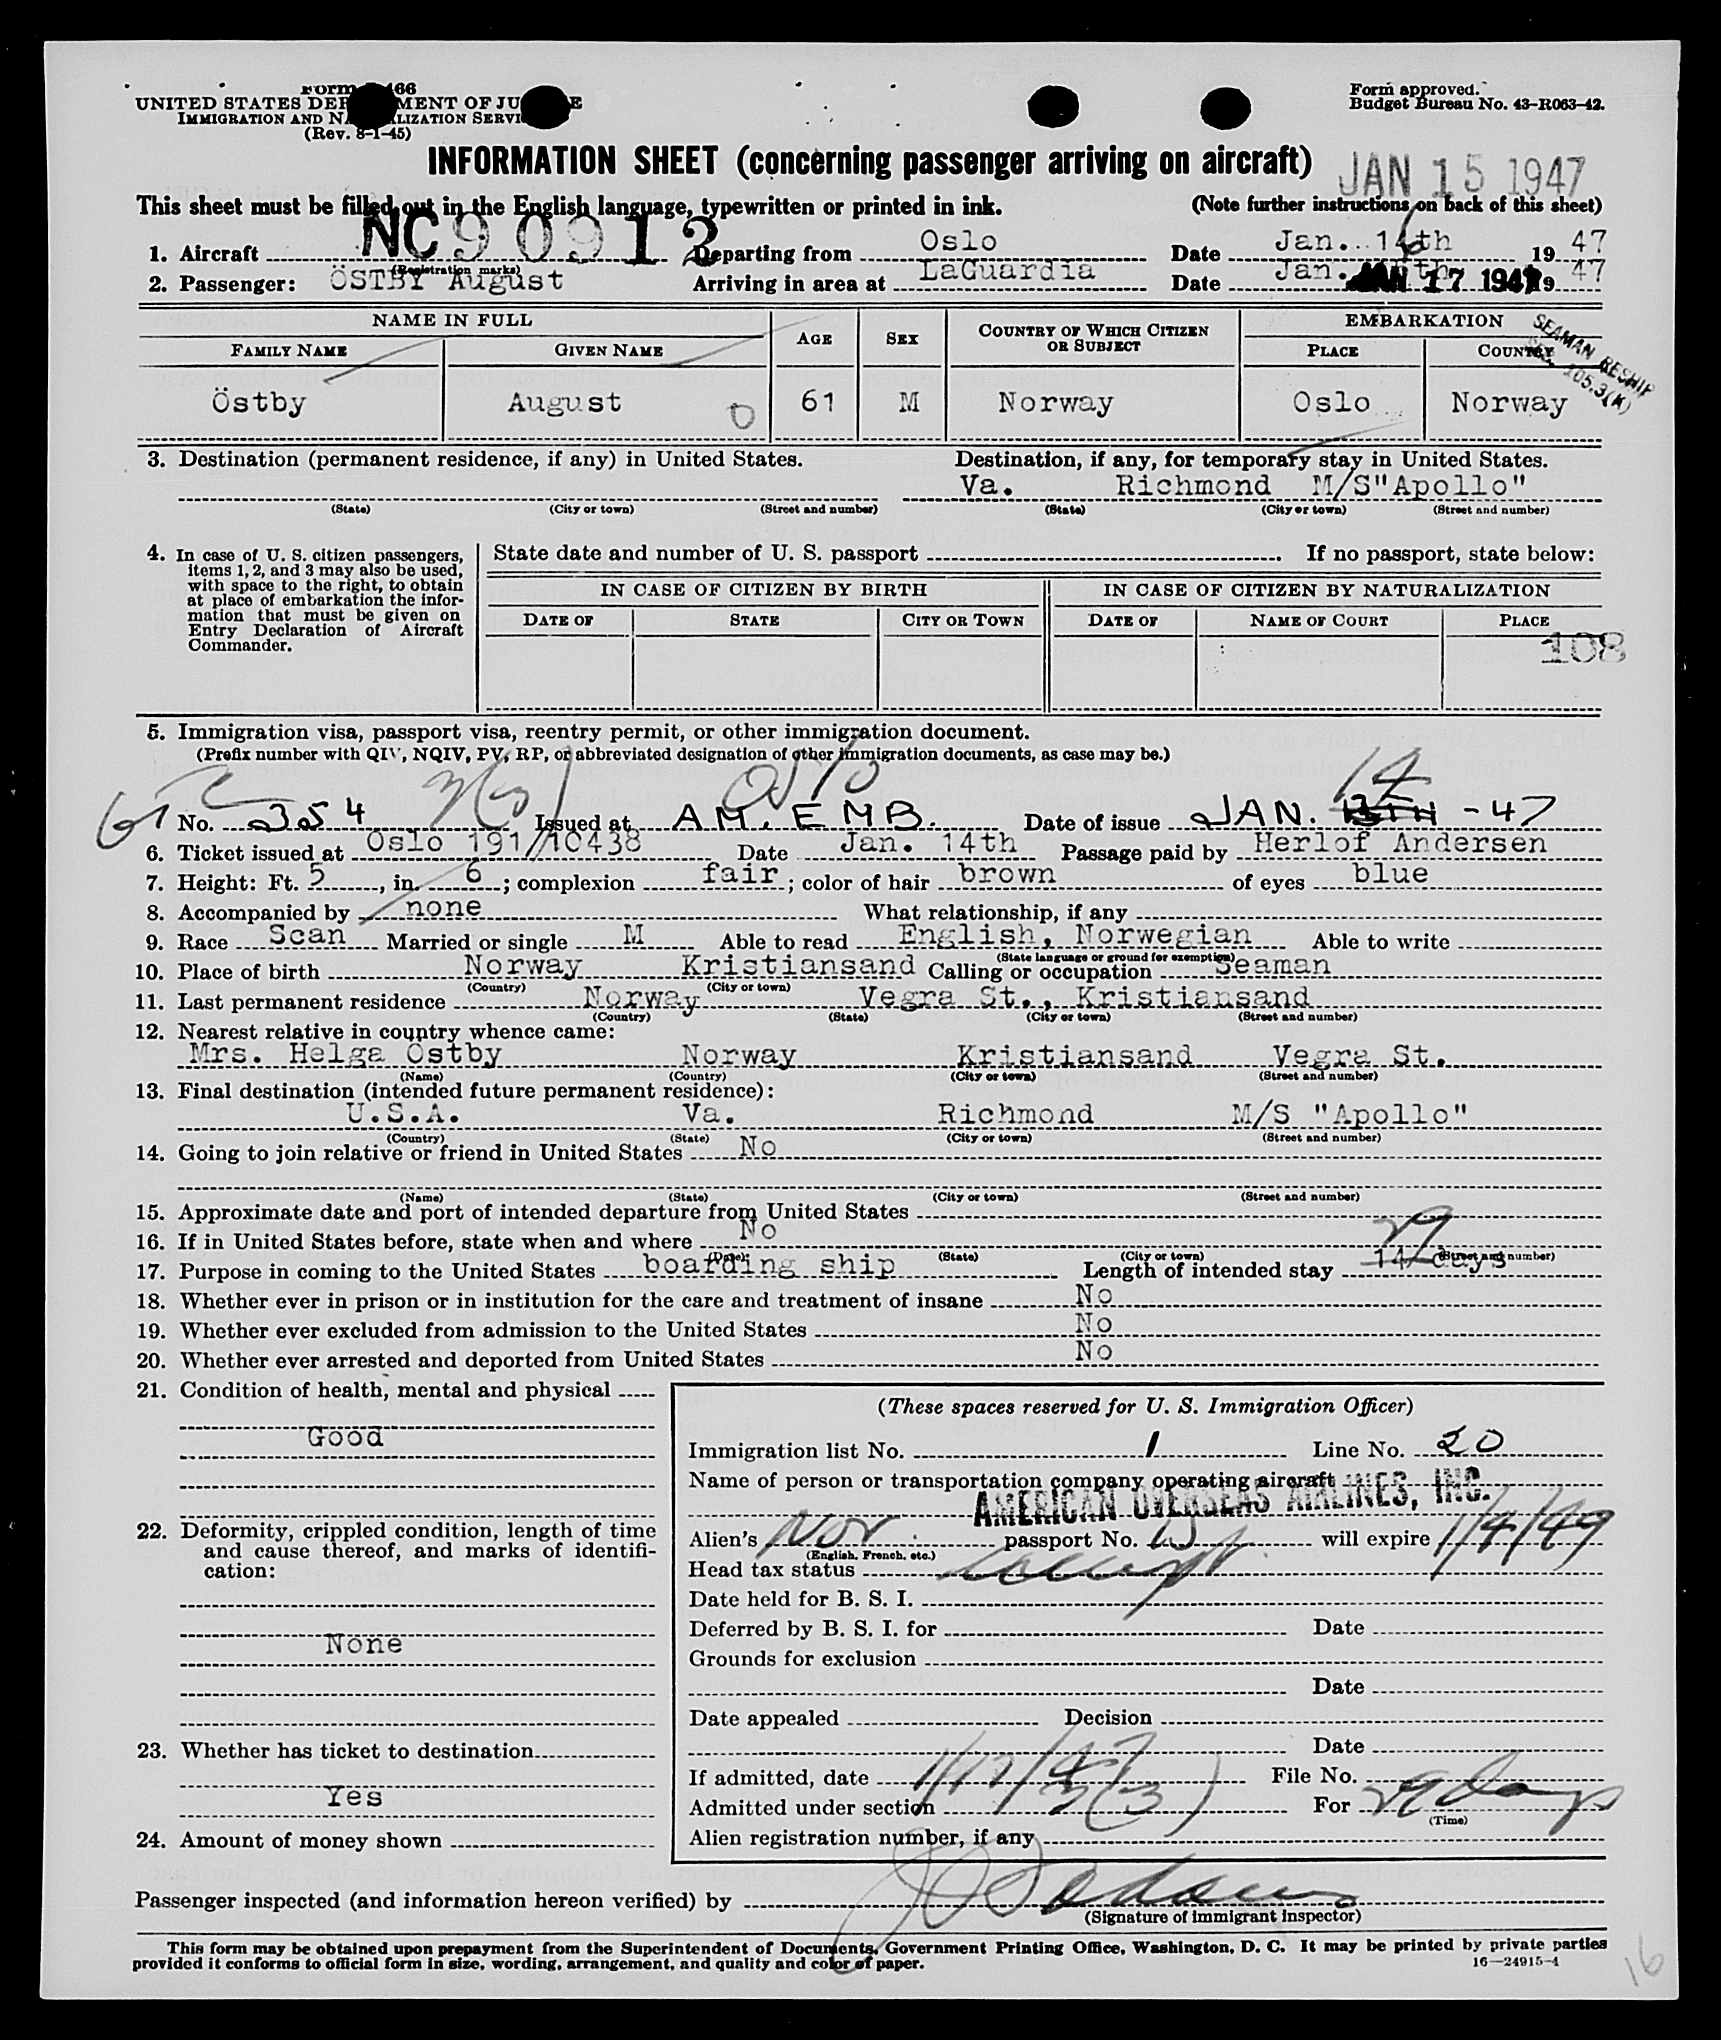 UNITED STATES DEPARTMENT OF JUSTICE
IMMIGRATION AND NATURALIZATION SERVICE
(Rev. 8-1-45)
Form approved.
Budget Bureau No. 43-R063-42.
INFORMATION SHEET (concerning passenger arriving on aircraft)
JAN 15 1947
This sheet must be filled out in the English language, typewritten or printed in ink. (Note further instructions on back of this sheet)
1. Aircraft NC90912 Departing from Oslo Date Jan. 16th 19 47
(Registration marks)
2. Passenger: ÖSTBY August Arriving in area at LaGuardia Date Jan. JAN 17 1947 19 47
NAME IN FULL AGE SEX COUNTRY OF WHICH CITIZEN OR SUBJECT EMBARKATION
FAMILY NAME GIVEN NAME PLACE COUNTRY
SEAMAN RESHIP
SEC. 105.3(K)
Östby August 0 61 M Norway Oslo Norway
3. Destination (permanent residence, if any) in United States. Destination, if any, for temporary stay in United States.
Va. Richmond M/S"Apollo"
(State) (City or town) (Street and number) (State) (City or town) (Street and number)
4. In case of U. S. citizen passengers, items 1, 2, and 3 may also be used, with space to the right, to obtain at place of embarkation the information that must be given on Entry Declaration of Aircraft Commander.
State date and number of U. S. passport If no passport, state below:
IN CASE OF CITIZEN BY BIRTH IN CASE OF CITIZEN BY NATURALIZATION
DATE OF STATE CITY OR TOWN DATE OF NAME OF COURT PLACE
108
5. Immigration visa, passport visa, reentry permit, or other immigration document.
(Prefix number with QIV, NQIV, PV, RP, or abbreviated designation of other immigration documents, as case may be.)
3(3) Oslo 14
No. 354 Issued at AM. EMB. Date of issue JAN. 13TH -47
6. Ticket issued at Oslo 191/10438 Date Jan. 14th Passage paid by Herlof Andersen
7. Height: Ft. 5, in. 6; complexion fair; color of hair brown of eyes blue
8. Accompanied by none What relationship, if any
9. Race Scan Married or single M Able to read English, Norwegian Able to write
(State language or ground for exemption)
10. Place of birth Norway Kristiansand Calling or occupation Seaman
(Country) (City or town)
11. Last permanent residence Norway Vegra St., Kristiansand
(Country) (State) (City or town) (Street and number)
12. Nearest relative in country whence came:
Mrs. Helga Östby Norway Kristiansand Vegra St.
(Name) (Country) (City or town) (Street and number)
13. Final destination (intended future permanent residence):
U.S.A. Va. Richmond M/S "Apollo"
(Country) (State) (City or town) (Street and number)
14. Going to join relative or friend in United States No
(Name) (State) (City or town) (Street and number)
15. Approximate date and port of intended departure from United States
16. If in United States before, state when and where No
(Date) (State) (City or town) (Street and number)
29
17. Purpose in coming to the United States boarding ship Length of intended stay 14 days
18. Whether ever in prison or in institution for the care and treatment of insane No
19. Whether ever excluded from admission to the United States No
20. Whether ever arrested and deported from United States No
21. Condition of health, mental and physical
Good
22. Deformity, crippled condition, length of time and cause thereof, and marks of identification:
None
23. Whether has ticket to destination
Yes
24. Amount of money shown
(These spaces reserved for U. S. Immigration Officer)
Immigration list No. 1 Line No. 20
Name of person or transportation company operating aircraft
AMERICAN OVERSEAS AIRLINES, INC.
Alien's Nor. passport No. will expire 1/4/49
(English, French, etc.)
Head tax status
Date held for B. S. I.
Deferred by B. S. I. for Date
Grounds for exclusion
Date
Date appealed Decision
Date
If admitted, date 1/17/47 File No.
Admitted under section 3(3) For 29 days
(Time)
Alien registration number, if any
Passenger inspected (and information hereon verified) by
(Signature of immigrant inspector)
This form may be obtained upon prepayment from the Superintendent of Documents, Government Printing Office, Washington, D. C. It may be printed by private parties
provided it conforms to official form in size, wording, arrangement, and quality and color of paper.
16—24915-4
16